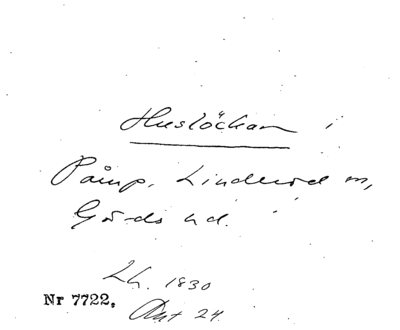 Huslöckan i
Påmp, Linderöd sn,
Gärds hd.
Lh. 1830
Nr 7722.
Akt 24